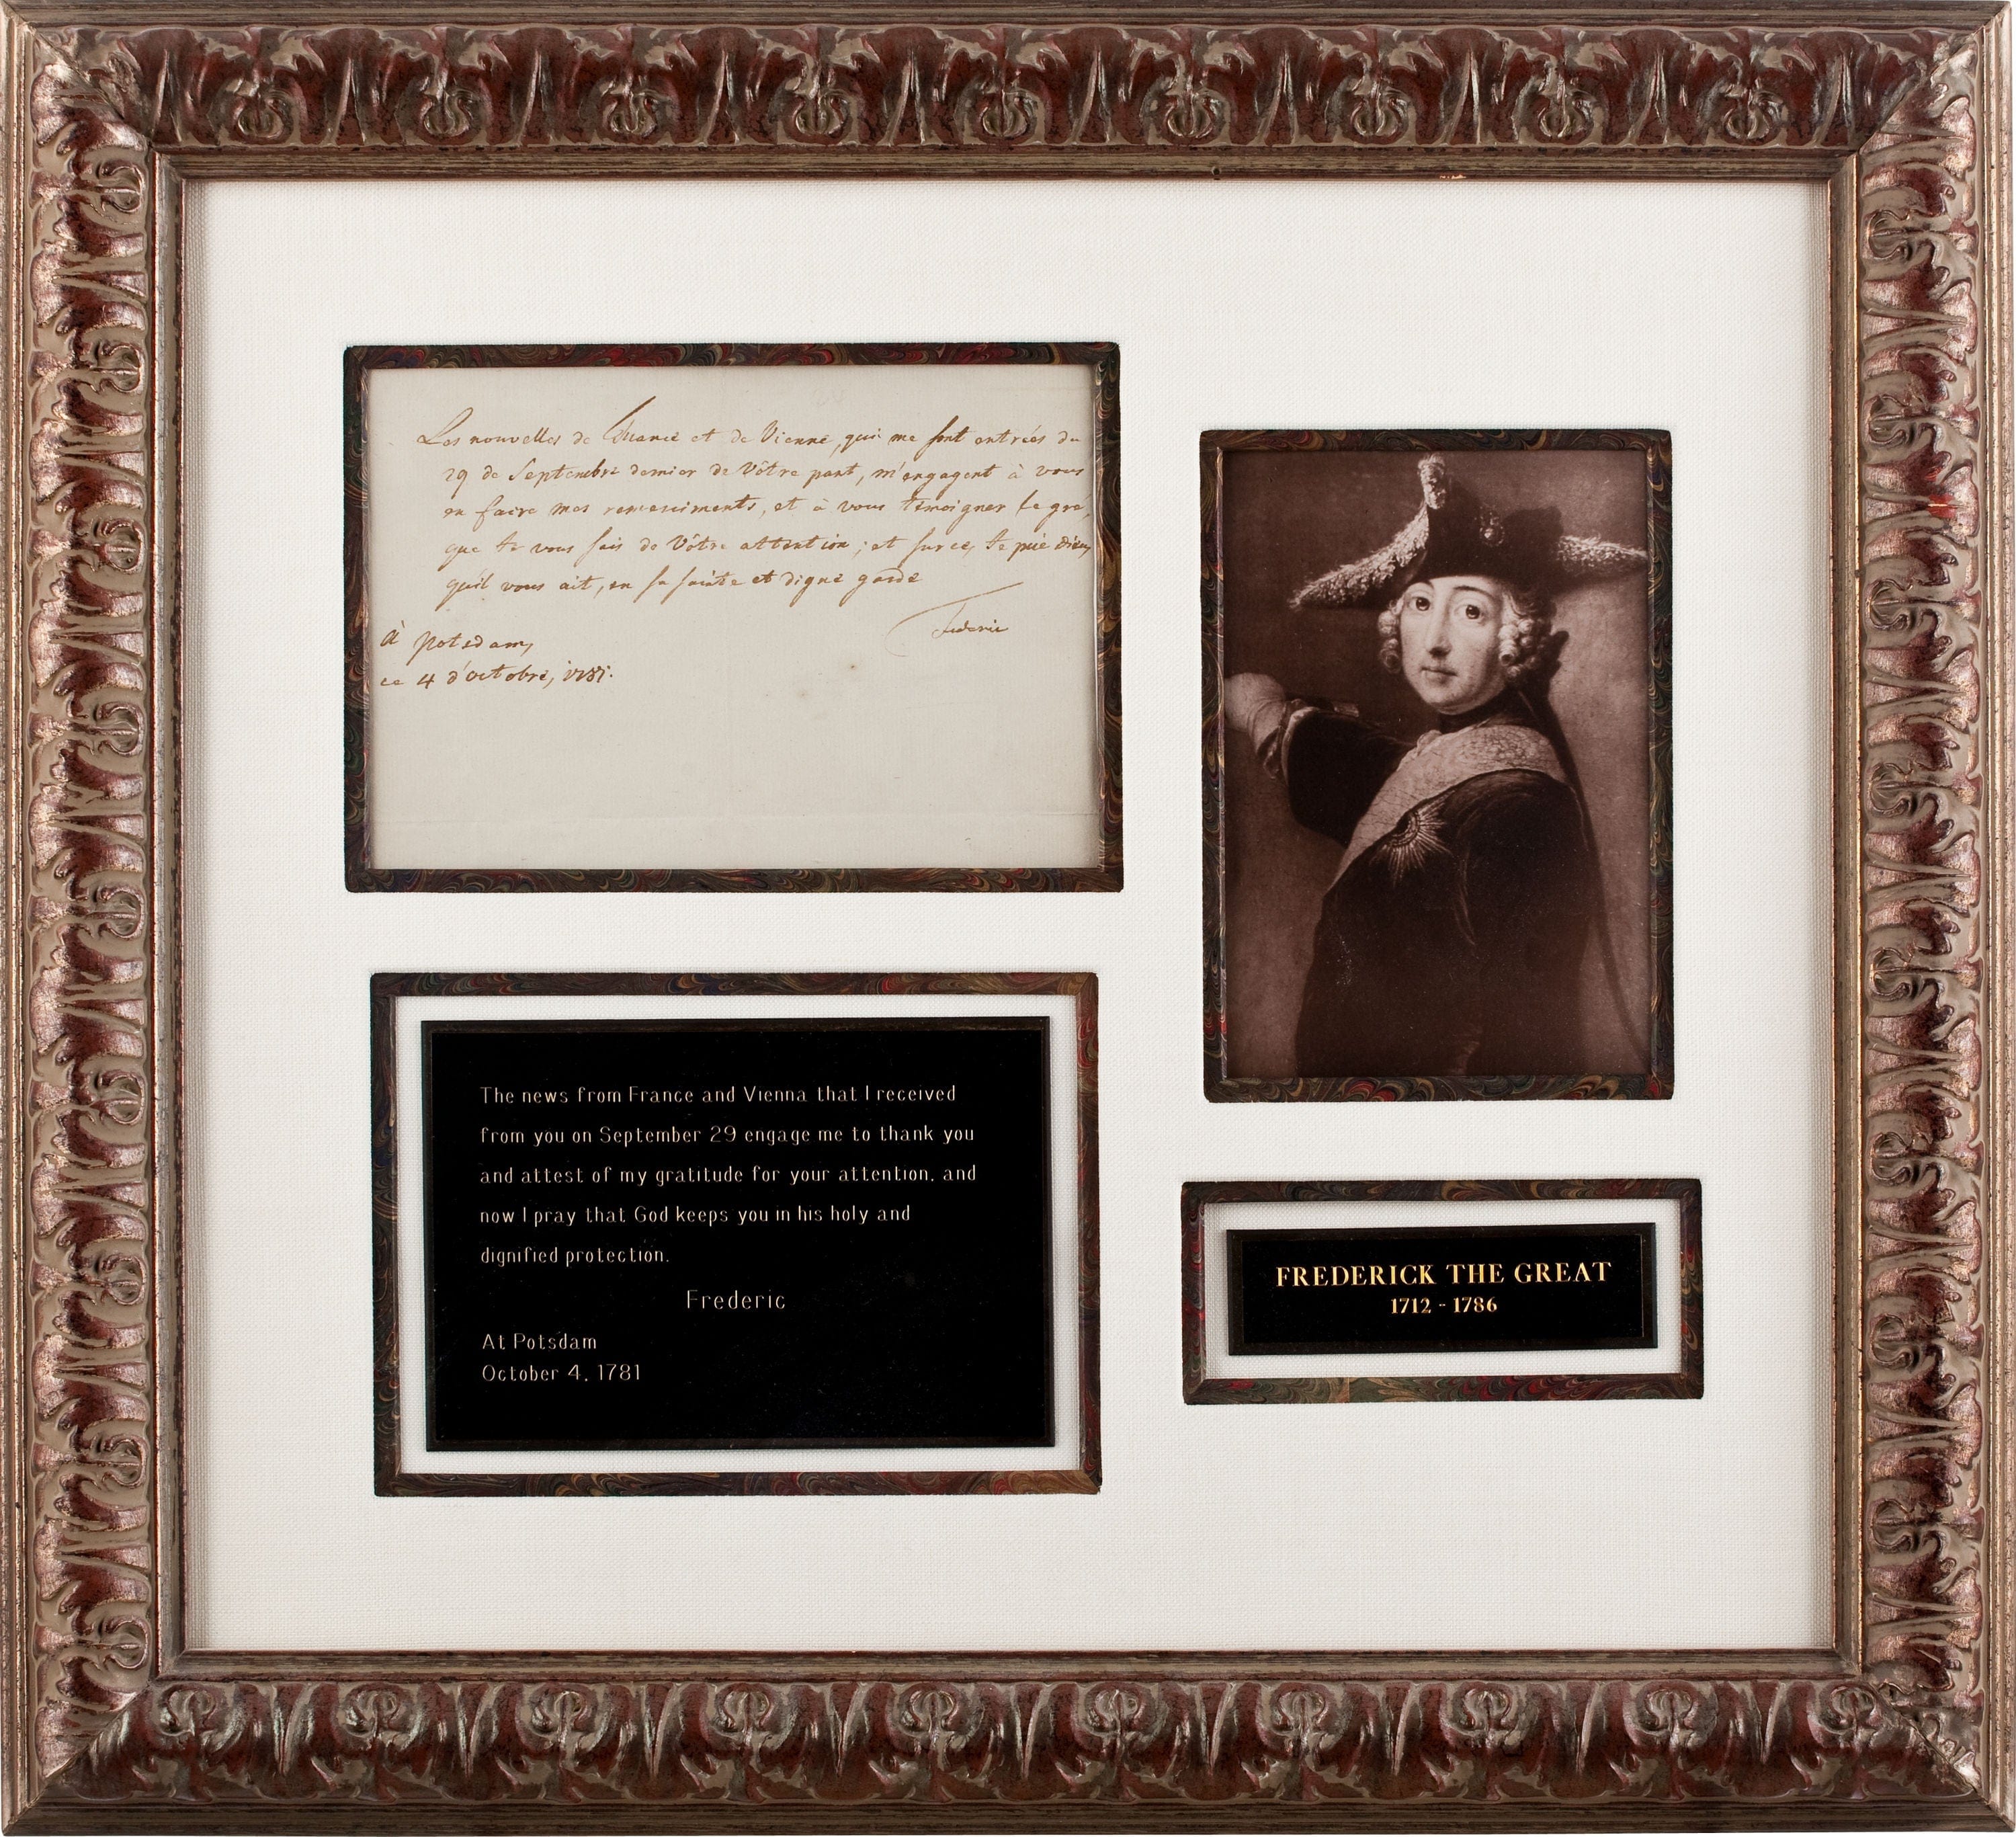 Les nouvelles de France et de Vienne, qui me sont entrées du
29 de Septembre dernier de Vôtre part, m'engagent à vous
en faire mes remerciments, et à vous témoigner le gré,
que Je vous sais de Vôtre attention; et sur ce, Je prie Dieu,
qu'il vous ait, en sa sainte et digne garde
Federic
à Potsdam,
ce 4 d'octobre, 1781.
The news from France and Vienna that I received
from you on September 29 engage me to thank you
and attest of my gratitude for your attention, and
now I pray that God keeps you in his holy and
dignified protection.
Frederic
At Potsdam
October 4, 1781
FREDERICK THE GREAT
1712 - 1786